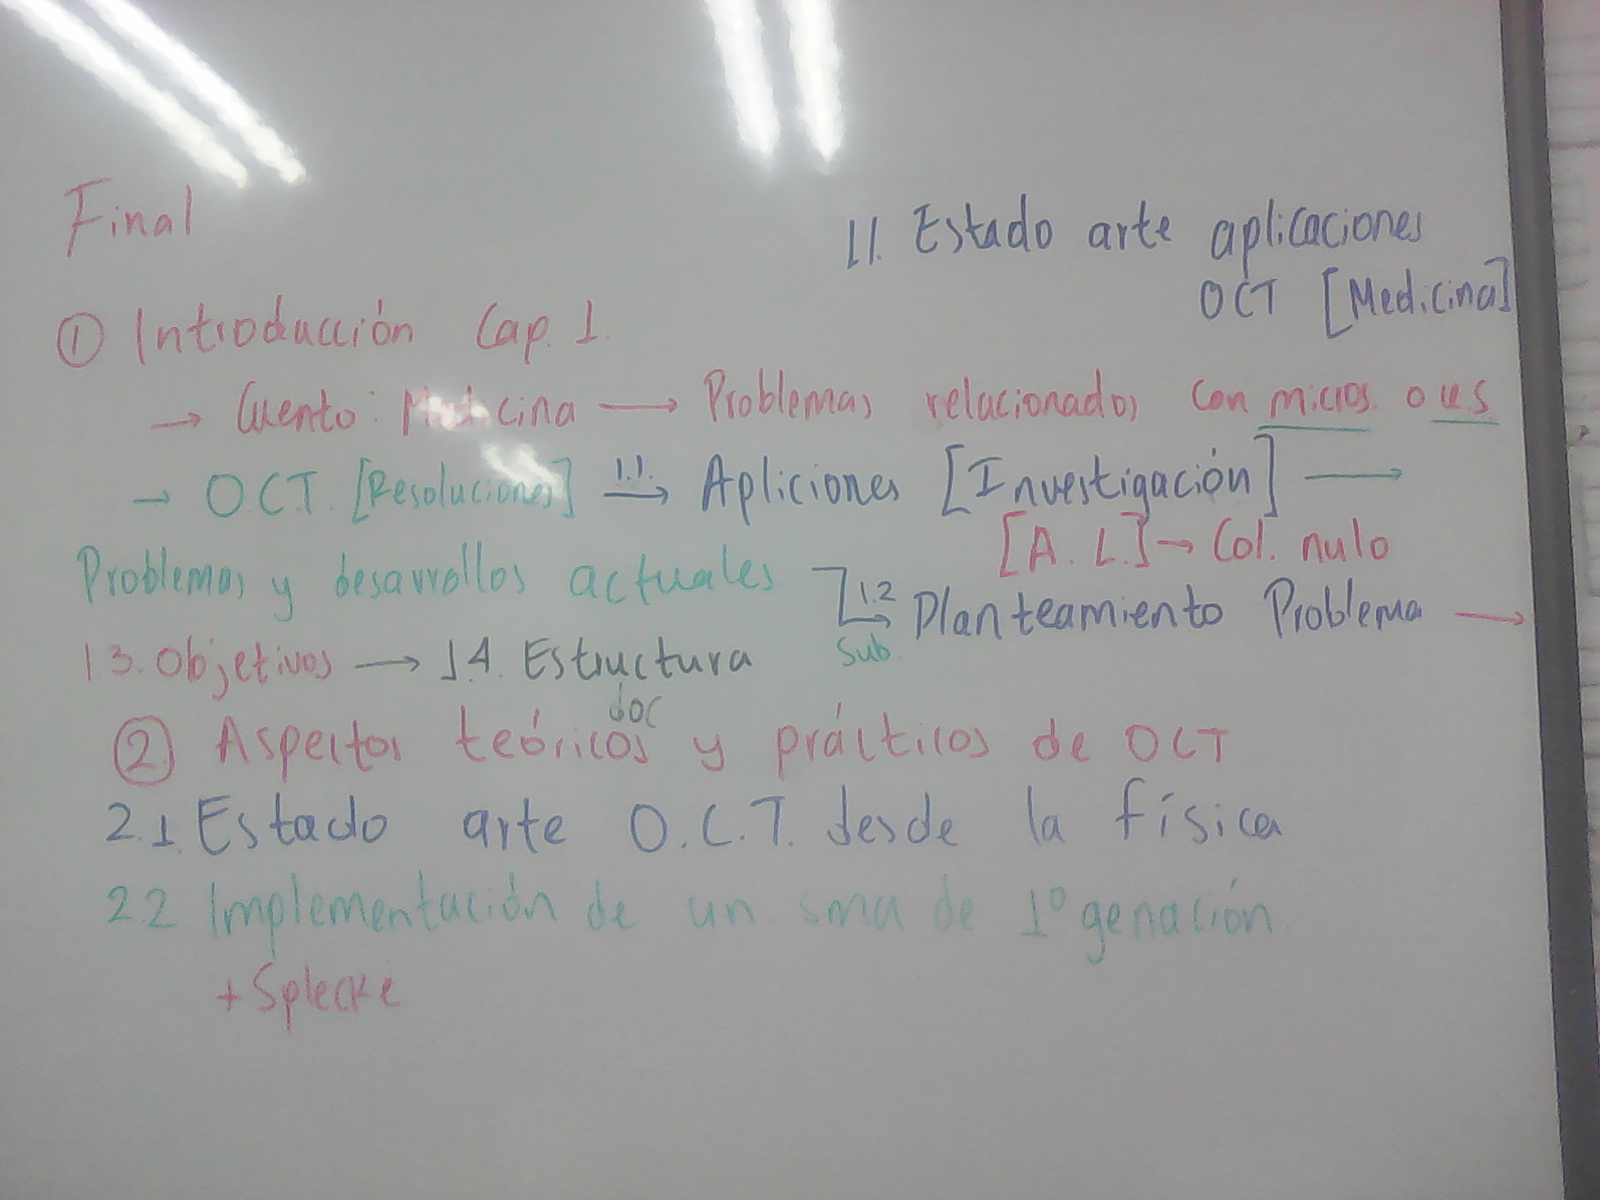 Final
1.1. Estado arte aplicaciones
OCT [Medicina]
① Introducción Cap. 1.
→ Cuento: Medicina → Problemas relacionados con micros. o u.s.
→ O.C.T. [Resoluciones] 1.1. → Apliciones [Investigación] →
[A. L.] → Col. nulo
Problemas y desarrollos actuales 1.2 → Planteamiento Problema →
Sub.
1.3. Objetivos → 1.4. Estructura
doc
② Aspectos teóricos y prácticos de OCT
2.1. Estado arte O.C.T. desde la física
2.2 Implementación de un sma de 1º genación.
+ Splecke